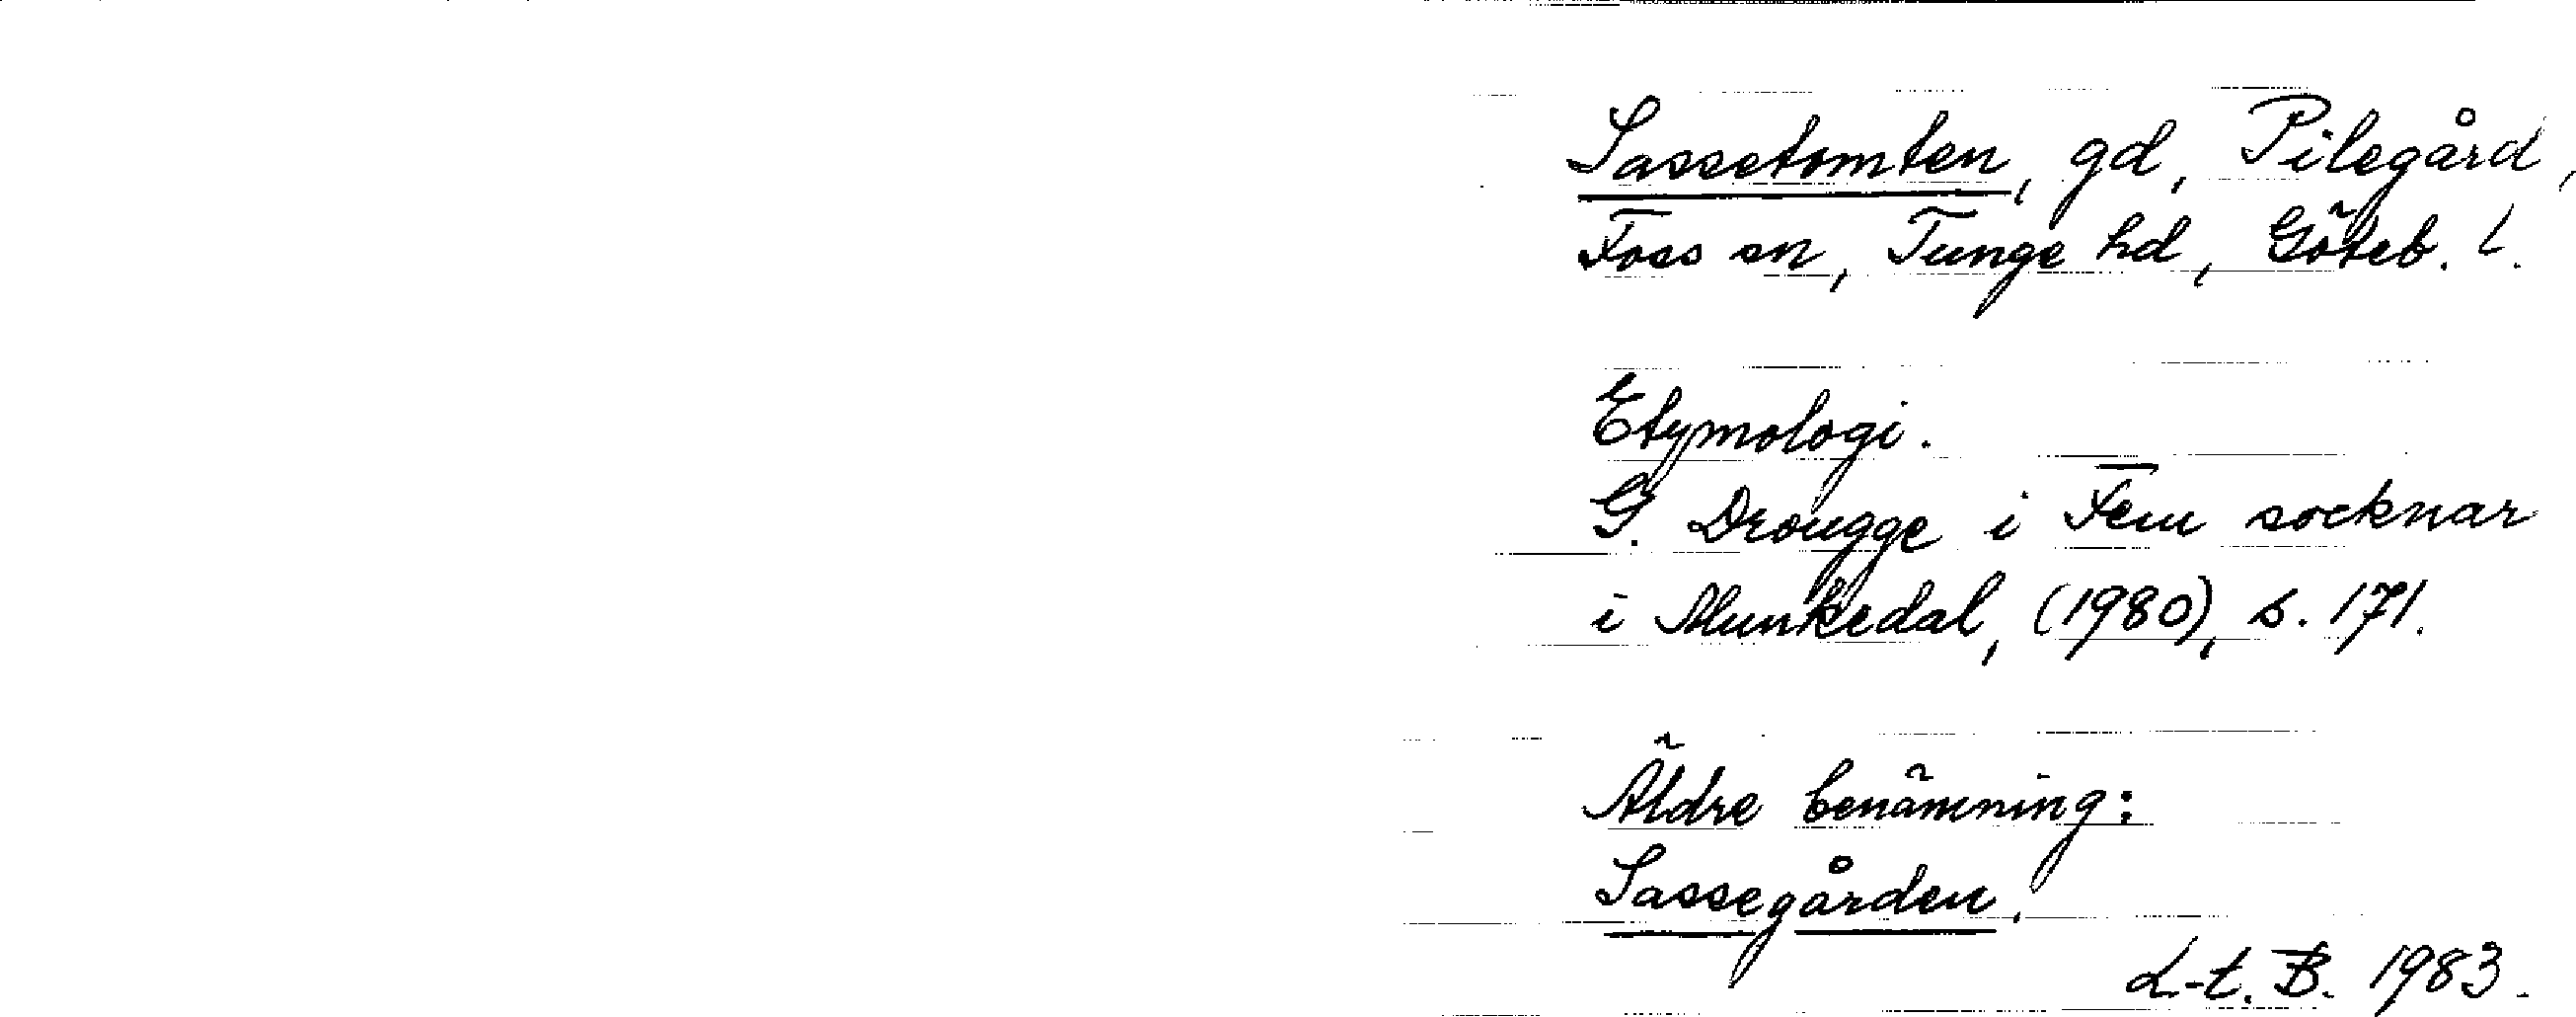 Sassetomten, gd, Pilegård,
Foss sn, Tunge hd, Göteb. l.
Etymologi.
G. Drougge i Fem socknar
i Munkedal, (1980), s. 171.
Äldre benämning:
Sassegården.
L-t. B. 1983.